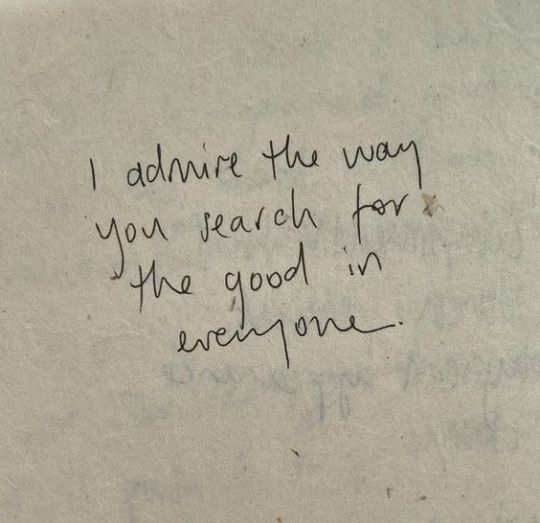 I admire the way
you search for
the good in
everyone.